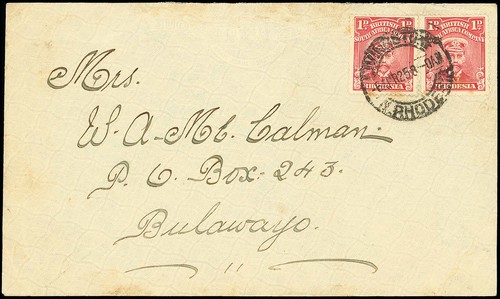 1D BRITISH 1D
SOUTH AFRICA COMPANY
RHODESIA
1D BRITISH 1D
SOUTH AFRICA COMPANY
RHODESIA
N. RHODESIA
Mrs.
W. A. Mc. Calman.
P. O. Box. 243.
Bulawayo.